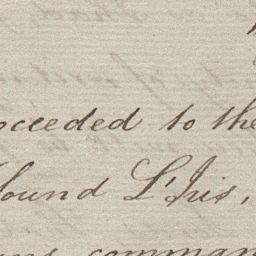 oceeded to the
found L'Iris,
comman